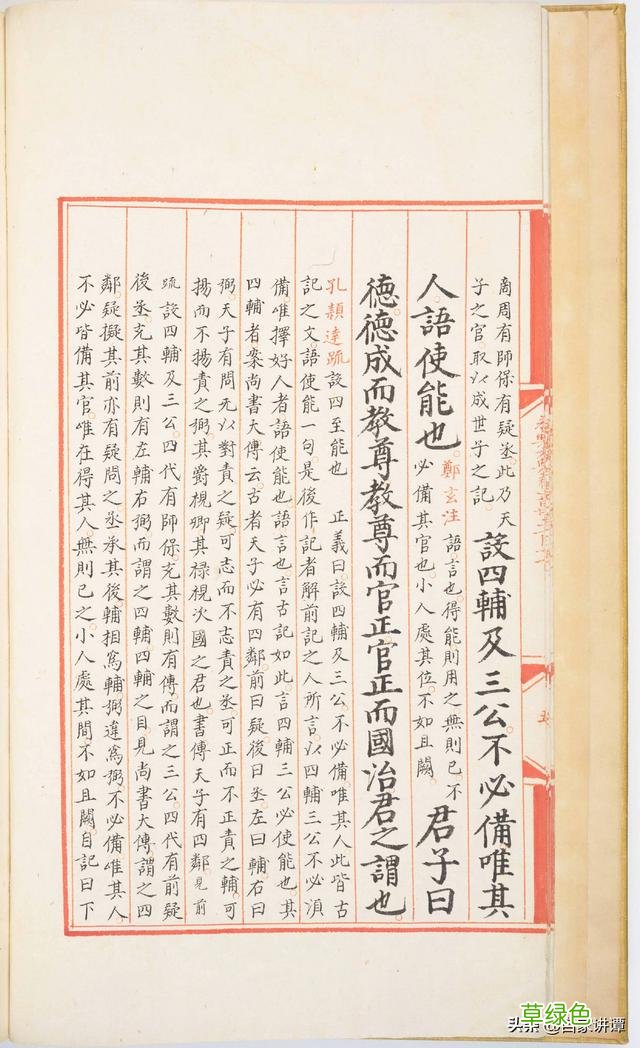 商周有師保有疑丞。此乃天
子之官取以成世子之記。
設四輔及三公。不必備唯其
人。語使能也。
鄭玄注 語言也。得能則用之無則已。不
必備其官也。小人處其位不如且闕。
君子曰
德。德成而教尊教尊而官正官正而國治君之謂也。
孔頴達疏 設四至能也 正義曰設四輔及三公。不必備唯其人此皆古
記之文語使能一句。是後作記者解前記之人所言。以四輔三公不必湏
備唯擇好人者。語使能也。語言也。言古記如此。言四輔三公必使能也。其
四輔者案尚書大傳云古者天子必有四鄰。前曰疑後曰丞。左曰輔。右曰
弼。天子有問无以對責之疑。可志而不志責之丞可正而不正責之輔。可
揚而不揚責之弼其爵視卿其禄視次國之君也。書傳天子有四鄰見前
疏設四輔及三公。四代有師保。充其數則有傅。而謂之三公。四代有前疑
後丞。充其數則有左輔右弼而謂之四輔四輔之目見尚書大傳謂之四
鄰。疑擬其前亦有疑問之丞承其後。輔相爲輔。弼違爲弼。不必備唯其人。
不必皆備其官。唯在得其人。無則已之。小人處其間不如且闕。自記曰下
草绿色
头条 @百家讲谭